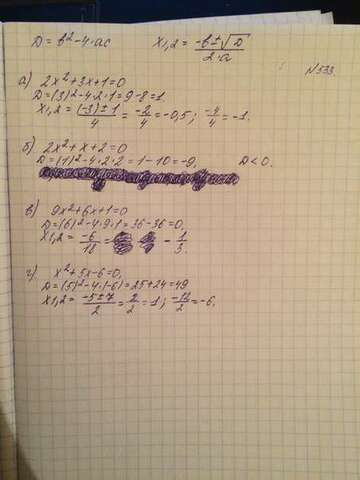 D = b²-4·ac X1,2 = -b±√D / 2·a
№533
а) 2x²+3x+1=0
D=(3)²-4·2·1=9-8=1.
X1,2= (-3)±1 / 4 = -2/4 = -0,5; -4/4 = -1.
б) 2x²+x+2=0
D=(1)²-4·2·2=1-10=-9. D<0.
в) 9x²+6x+1=0
D=(6)²-4·9·1=36-36=0.
X1,2= -6/18 = - 1/3.
г) x²+5x-6=0,
D=(5)²-4·(-6)=25+24=49
X1,2= -5±7 / 2 = 2/2 = 1; -12/2 = -6.